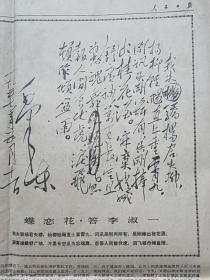 人民日报
我失骄杨君失柳
杨柳轻飏直上重霄九
问讯吴刚何所有吴刚捧
出桂花酒 寂寞嫦娥
舒广袖万里长空且为
忠魂舞忽
报人间曾伏虎泪飞
顿作倾盆雨
毛泽东
蝶恋花·答李淑一
我失骄杨君失柳，杨柳轻飏直上重霄九。问讯吴刚何所有，吴刚捧出桂花酒。
寂寞嫦娥舒广袖，万里长空且为忠魂舞。忽报人间曾伏虎，泪飞顿作倾盆雨。